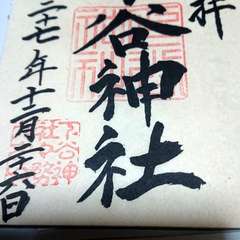 拝
谷神社
二十七年十二月二十六日
下谷神